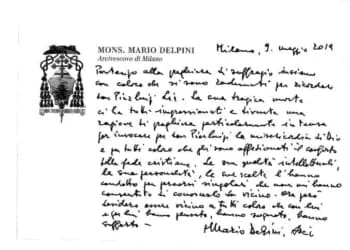 MONS. MARIO DELPINI
Arcivescovo di Milano
Milano, 9. maggio 2019
Partecipo alla preghiera di suffragio insieme
con coloro che si sono radunati per ricordare
don Pierluigi Lia. La sua tragica morte
ci ha tutti impressionati e diventa una
ragione di preghiera particolarmente intensa
per invocare per don Pierluigi la misericordia di Dio
e per tutti coloro che gli sono affezionati il conforto
della fede cristiana. Le sue qualità intellettuali,
la sua personalità, le sue scelte l'hanno
condotto per percorsi singolari che non mi hanno
consentito di conoscerlo da vicino. Ora però
desidero essere vicino a tutti coloro che con lui
e per lui hanno pensato, hanno sognato, hanno
sofferto -
+ Mario Delpini,